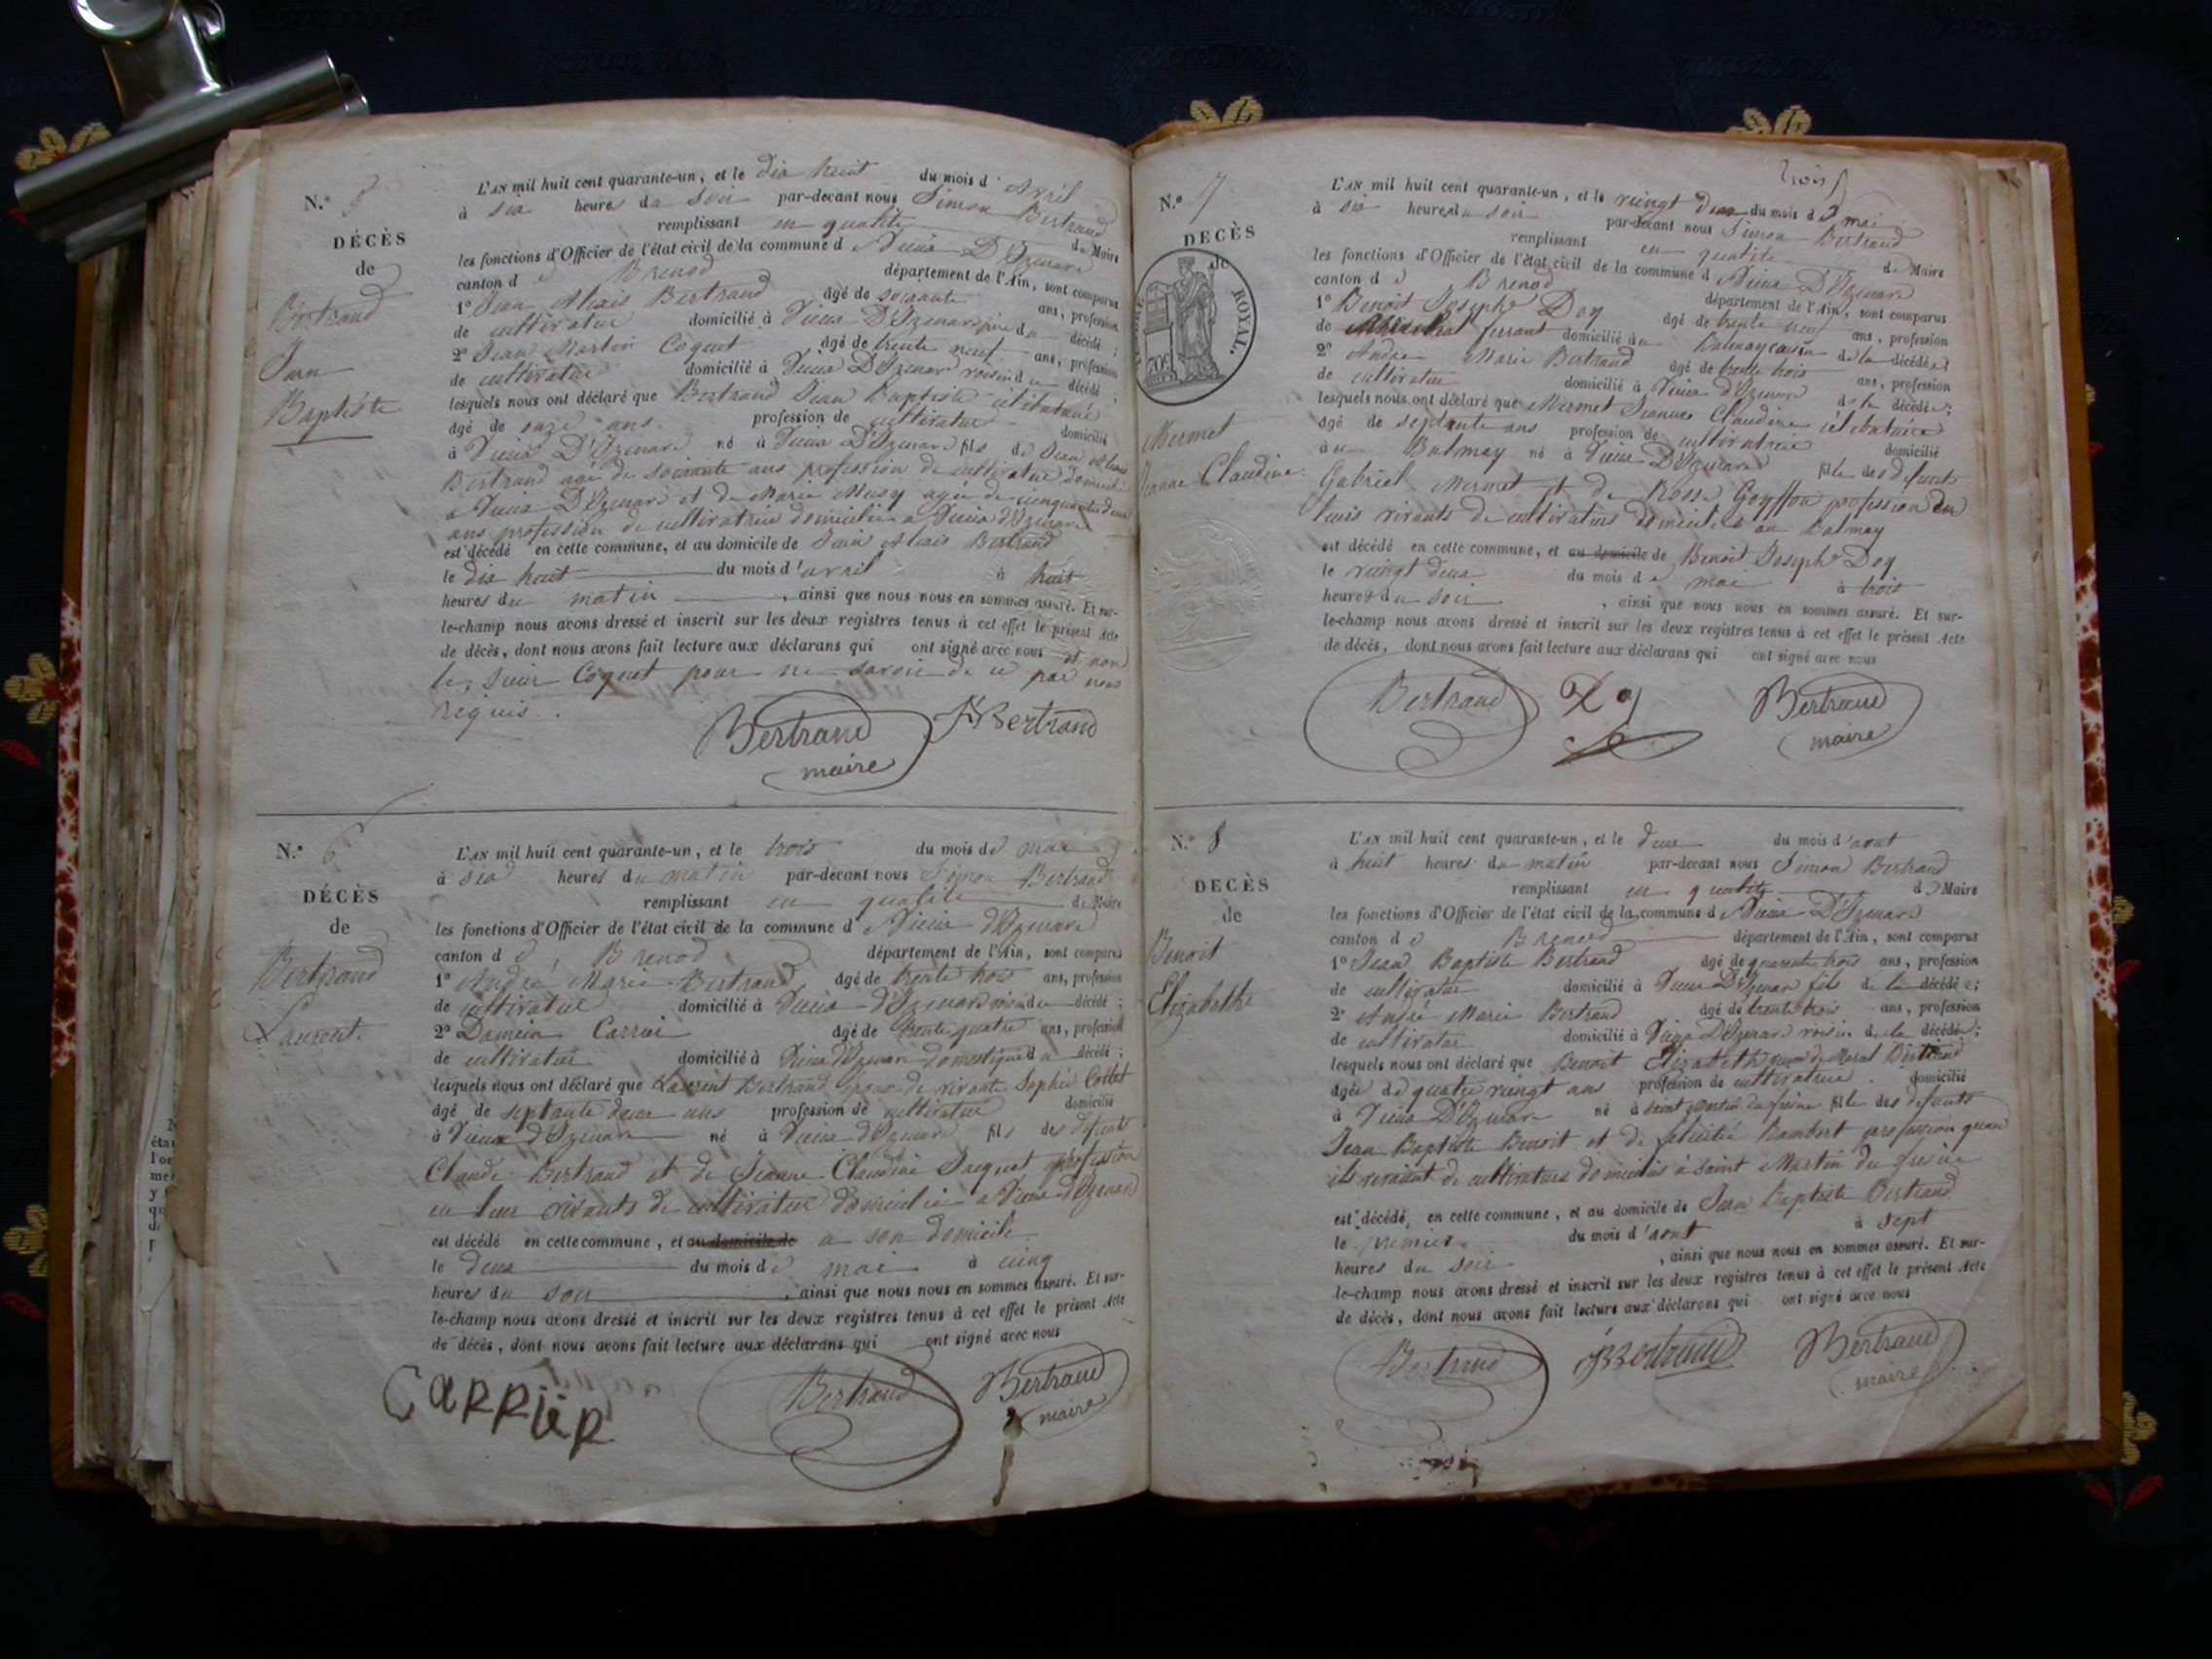 N.° 5
DÉCÈS
de
Bertrand
Jean
Baptiste
L'AN mil huit cent quarante-un, et le dix huit du mois d'Avril
à six heures du soir par-devant nous Simon Bertrand
remplissant en qualité de Maire
les fonctions d'Officier de l'état civil de la commune d Vieux D'Izenave
canton de Brenod département de l'Ain, sont comparus
1° Jean Alexis Bertrand âgé de soixante ans, profession
de cultivateur domicilié à Vieux D'Izenave père du décédé;
2° Jean Martin Coquet âgé de trente neuf ans, profession
de cultivateur domicilié à Vieux D'Izenave voisin du décédé;
lesquels nous ont déclaré que Bertrand Jean Baptiste célibataire
âgé de onze ans profession de cultivateur domicilié
à Vieux D'Izenave né à Vieux D'Izenave fils de Jean Alexis
Bertrand agé de soixante ans profession de cultivateur domicilié
a Vieux D'Izenave et de Marie Musy agée de cinquante deux
ans profession de cultivatrice domiciliée a Vieux d'Izenave
est décédé en cette commune, et au domicile de Jean Alexis Bertrand
le dix huit du mois d'avril à huit
heures du matin, ainsi que nous nous en sommes assuré. Et sur-
le-champ nous avons dressé et inscrit sur les deux registres tenus à cet effet le présent Acte
de décès, dont nous avons fait lecture aux déclarans qui ont signé avec nous et non
le sieur Coquet pour ne savoir de ce par nous
requis.
Bertrand maire
Bertrand
N.° 6
DÉCÈS
de
Bertrand
Laurent.
L'AN mil huit cent quarante-un, et le trois du mois de mai
à six heures du matin par-devant nous Simon Bertrand
remplissant en qualité de Maire
les fonctions d'Officier de l'état civil de la commune d Vieux d'Izenave
canton de Brenod département de l'Ain, sont comparus
1° André Marie Bertrand âgé de trente trois ans, profession
de cultivateur domicilié à Vieux d'Izenave voisin du décédé;
2° Damien Carrier âgé de trente quatre ans, profession
de cultivateur domicilié à Vieux d'Izenave domestique du décédé;
lesquels nous ont déclaré que Laurent Bertrand époux de vivante Sophie Collet
âgé de septante deux ans profession de cultivateur domicilié
à Vieux d'Izenave né à Vieux d'Izenave fils des défunts
Claude Bertrand et de Jeanne Claudine Jacquet profession
en leur vivants de cultivateur domicilié a Vieux d'Izenave
est décédé en cette commune, et au domicile de a son domicile
le deux du mois de mai à cinq
heures du soir, ainsi que nous nous en sommes assuré. Et sur-
le-champ nous avons dressé et inscrit sur les deux registres tenus à cet effet le présent Acte
de décès, dont nous avons fait lecture aux déclarans qui ont signé avec nous
CARRIER
Bertrand
Bertrand maire
trois
N.° 7
DECÈS
de
ROYAL.
Mermet
Jeanne Claudine
L'AN mil huit cent quarante-un, et le vingt deux du mois de mai
à six heures du soir par-devant nous Simon Bertrand
remplissant en qualité de Maire
les fonctions d'Officier de l'état civil de la commune d Vieux D'Izenave
canton de Brenod département de l'Ain, sont comparus
1° Benoit Joseph Doy âgé de trente neuf ans, profession
de Maréchal ferrant domicilié au Balmay cousin de la décédée
2° André Marie Bertrand âgé de trente trois ans, profession
de cultivateur domicilié à Vieux d'Izenave de la décédée;
lesquels nous ont déclaré que Mermet Jeanne Claudine célibataire
âgé de septante ans profession de cultivatrice domicilié
au Balmay né à Vieux D'Izenave fille des defunts
Gabriel Mermet et de Rose Goyffon profession en
leurs vivants de cultivateurs domiciliés au Balmay
est décédé en cette commune, et au domicile de Benoit Joseph Doy
le vingt deux du mois de mai à trois
heures du soir, ainsi que nous nous en sommes assuré. Et sur-
le-champ nous avons dressé et inscrit sur les deux registres tenus à cet effet le présent Acte
de décès, dont nous avons fait lecture aux déclarans qui ont signé avec nous
Bertrand
Doy
Bertrand maire
N.° 8
DECÈS
de
Benoit
Elizabethe
L'AN mil huit cent quarante-un, et le deux du mois d'aout
à huit heures du matin par-devant nous Simon Bertrand
remplissant en qualité de Maire
les fonctions d'Officier de l'état civil de la commune d Vieux D'Izenave
canton de Brenod département de l'Ain, sont comparus
1° Jean Baptiste Bertrand âgé de quarante trois ans, profession
de cultivateur domicilié à Vieux D'Izenave fils de la décédée;
2° André Marie Bertrand âgé de trente trois ans, profession
de cultivateur domicilié à Vieux D'Izenave voisin de la décédée;
lesquels nous ont déclaré que Benoit Elizabeth Bertrand
âgée de quatre vingt ans profession de cultivatrice domicilié
à Vieux D'Izenave né à saint Martin du fresne fille des défunts
Jean Baptiste Benoit et de felicitée Rambert profession quand
ils vivaient de cultivateurs domiciliés à saint Martin du fresne
est décédé, en cette commune, et au domicile de Jean Baptiste Bertrand
le premier du mois d'aout à sept
heures du soir, ainsi que nous nous en sommes assuré. Et sur-
le-champ nous avons dressé et inscrit sur les deux registres tenus à cet effet le présent Acte
de décès, dont nous avons fait lecture aux déclarans qui ont signé avec nous
Bertrand
Bertrand
Bertrand maire